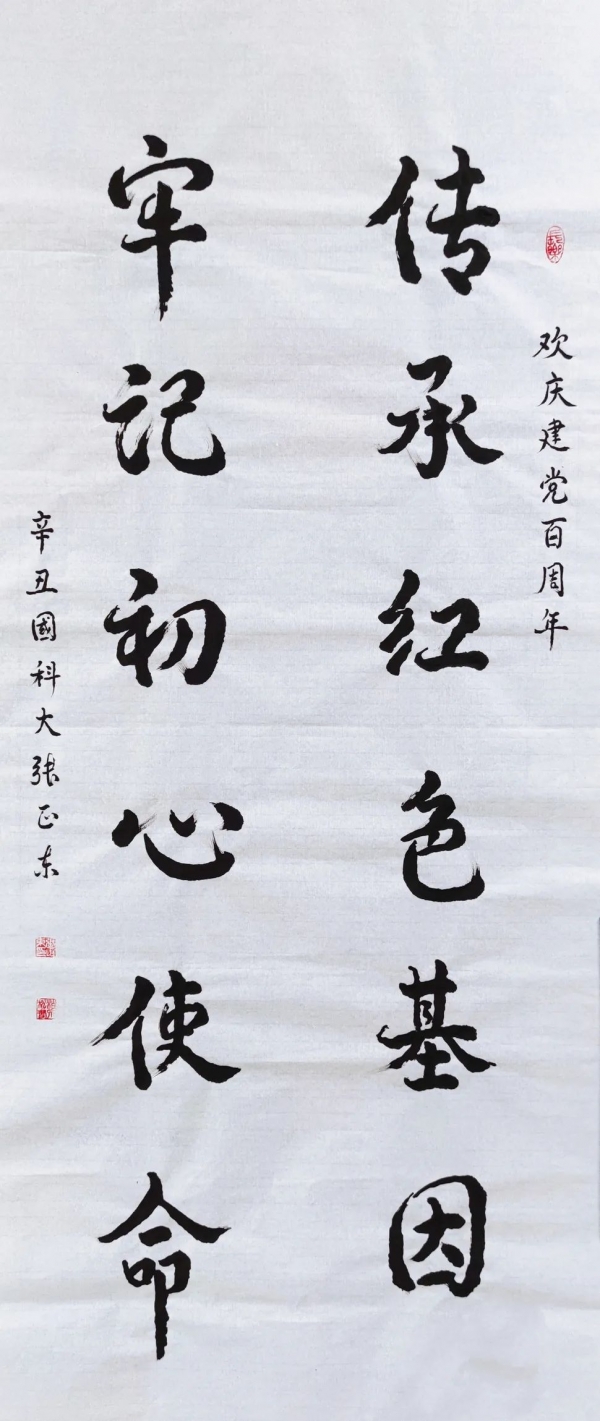 欢庆建党百周年
传承红色基因
牢记初心使命
辛丑國科大張正东